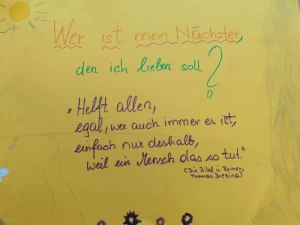 Wer ist mein Nächster,
den ich lieben soll?
"Helft allen,
egal, wer auch immer es ist,
einfach nur deshalb,
weil ein Mensch das so tut."
(Die Bibel in Reimen,
Thomas Brezina)